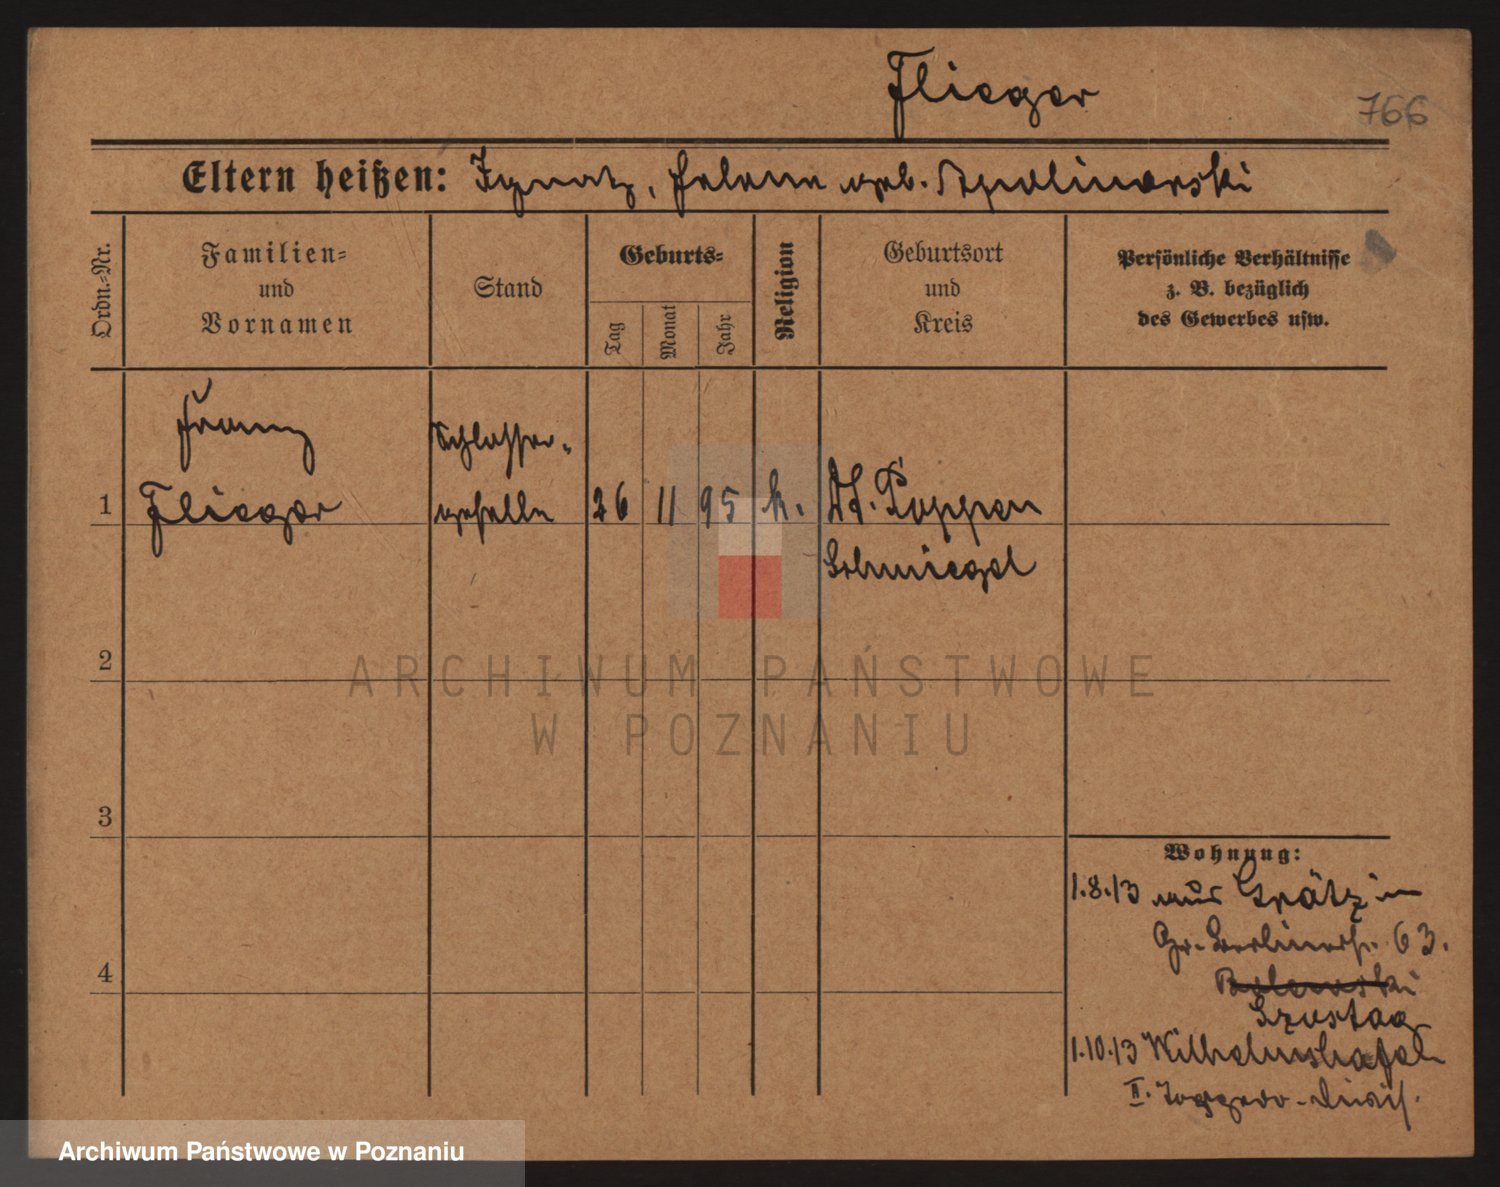 Flieger
766
Eltern heißen: Ignatz, Helene geb. Apolinarski
Ordn.-Nr.
Familien-
und
Vornamen
Stand
Geburts-
Tag
Monat
Jahr
Religion
Geburtsort
und
Kreis
Persönliche Verhältnisse
z. B. bezüglich
des Gewerbes usw.
Franz
Schlosser-
1 Flieger geselle 26 11 95 k. Dt. Poppen
Schmiegel
2
ARCHIWUM PAŃSTWOWE
W POZNANIU
3
Wohnung:
1.8.13 aus Grätz in
Gr. Berlinerstr. 63.
4
Szostag
1.10.13 Wilhelmshafen
II. Torpedo-Divis.
Archiwum Państwowe w Poznaniu